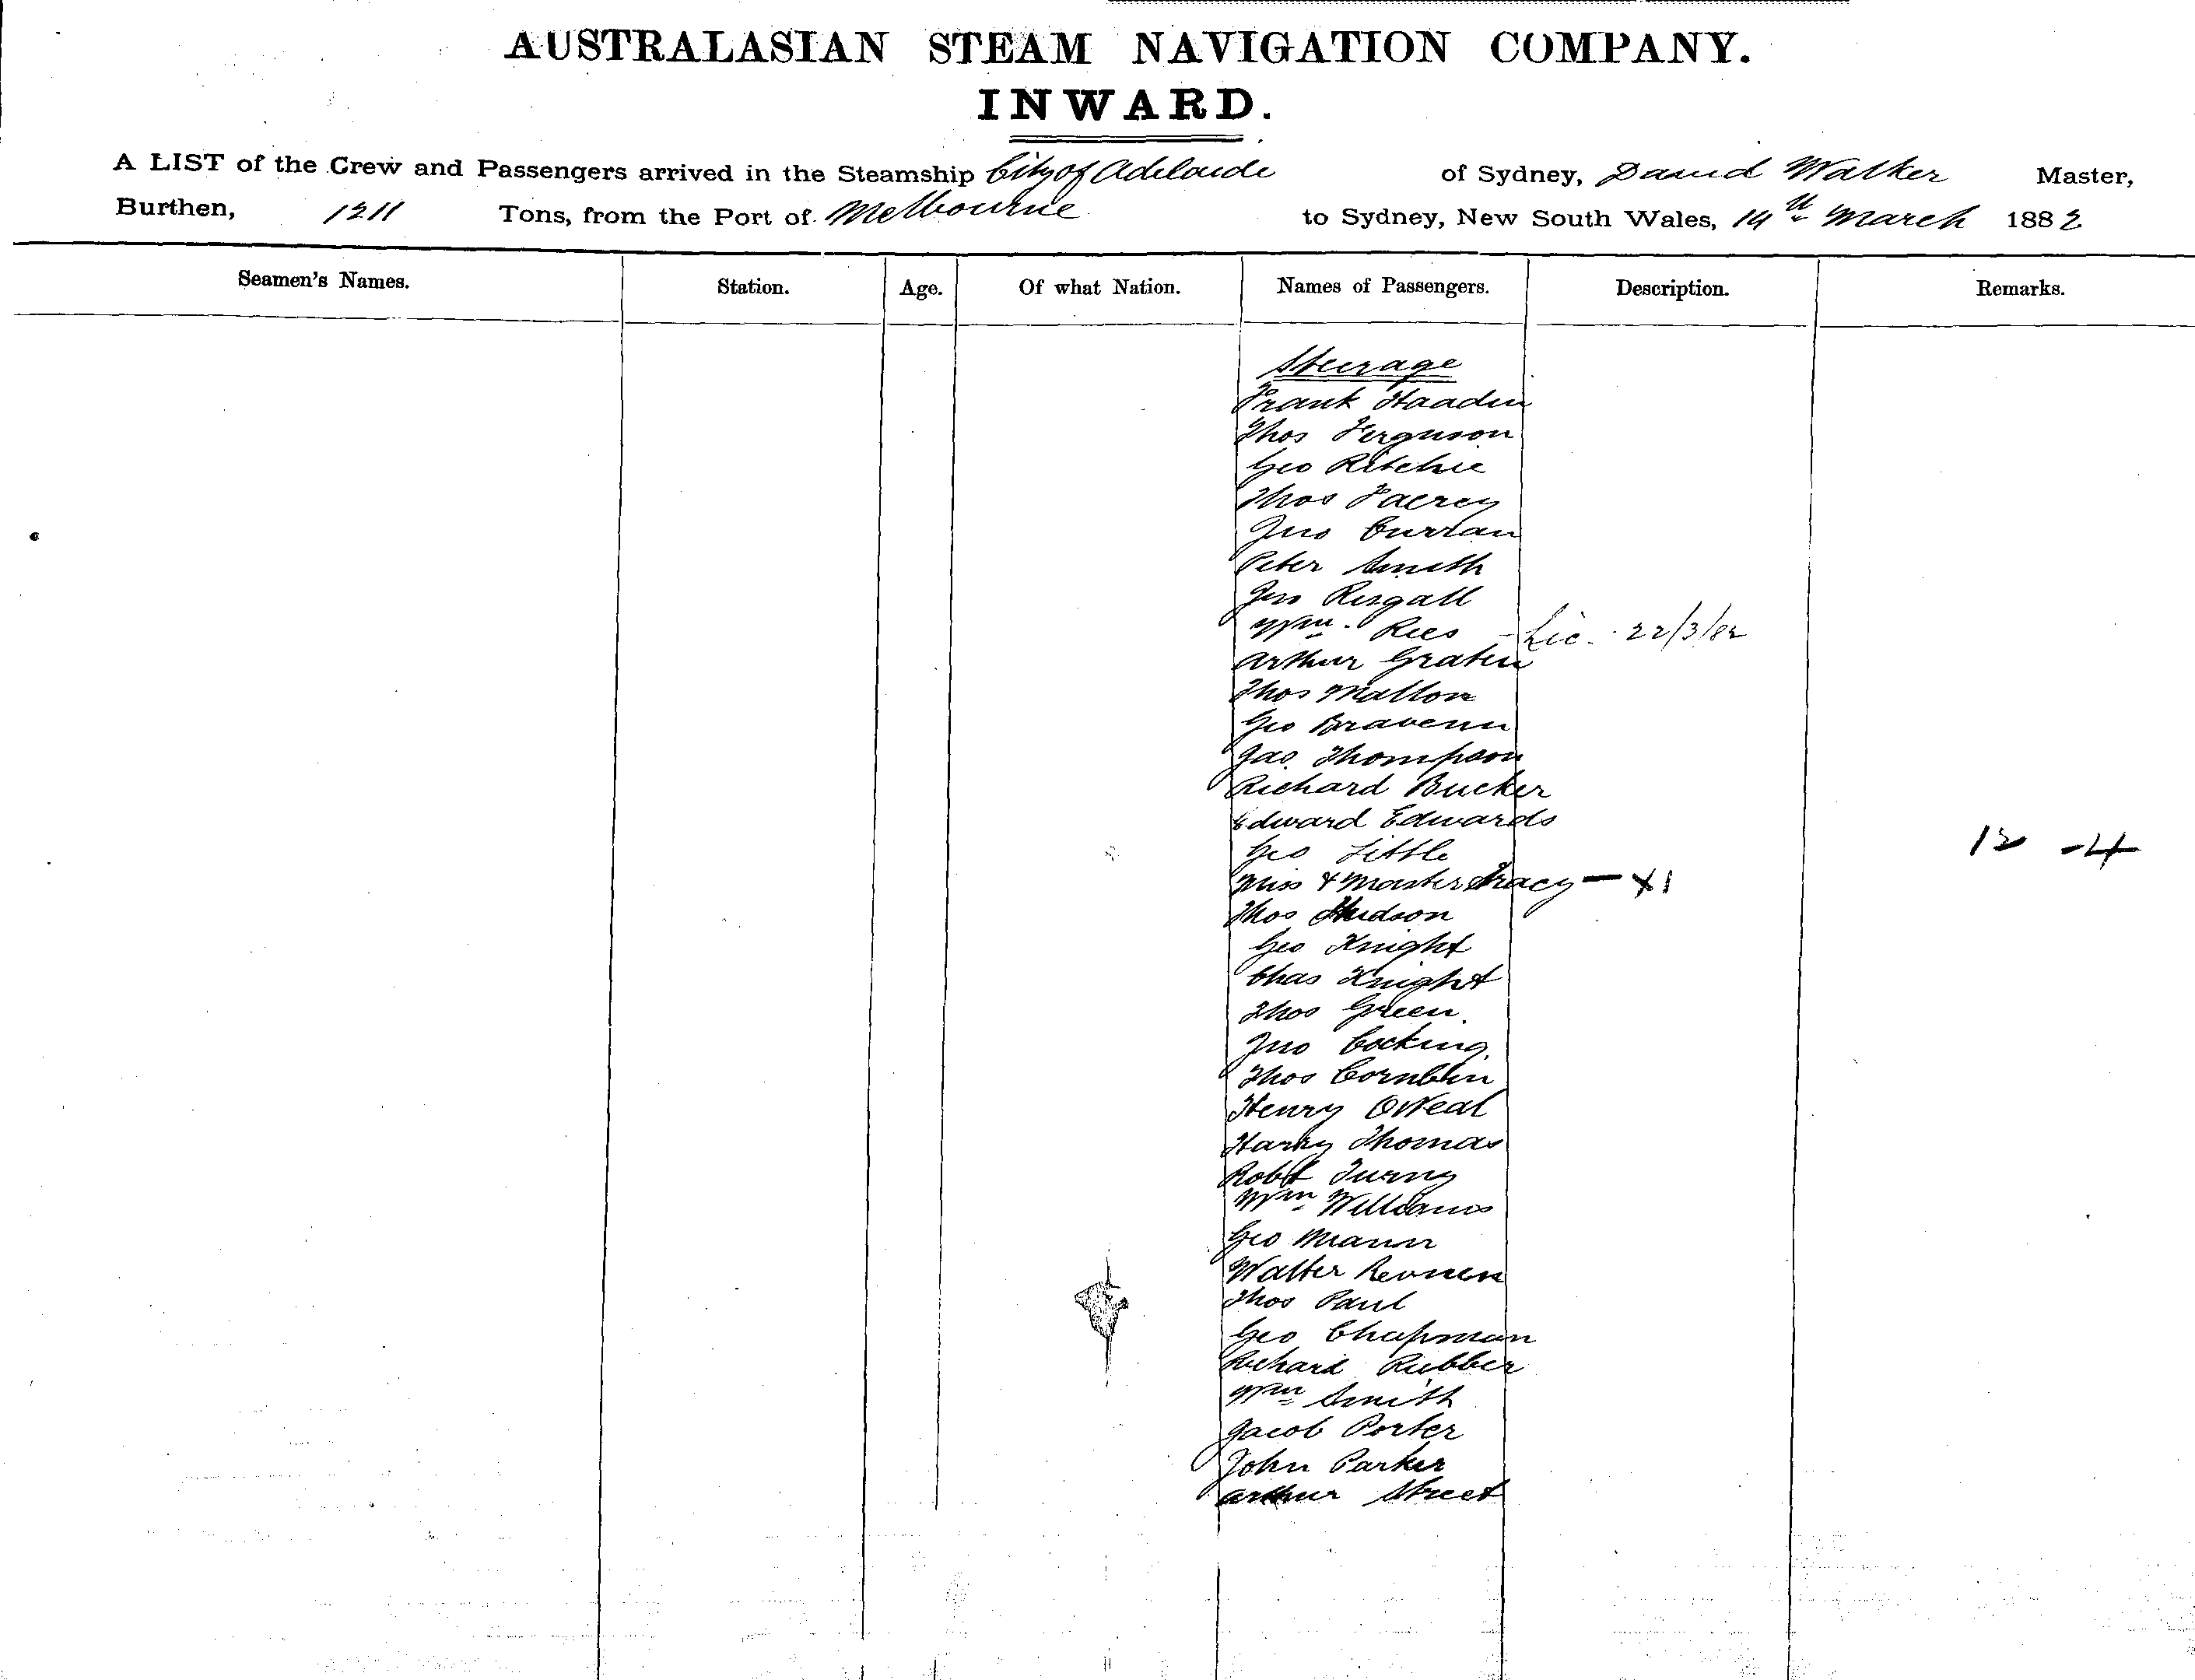 AUSTRALASIAN STEAM NAVIGATION COMPANY.
INWARD.
A LIST of the Crew and Passengers arrived in the Steamship City of Adelaide of Sydney, David Walker Master,
Burthen, 1211 Tons, from the Port of Melbourne to Sydney, New South Wales, 14th March 1882
Seamen's Names. Station. Age. Of what Nation. Names of Passengers. Description. Remarks.
Steerage
Frank Haaden
Thos Ferguson
Geo Ritchie
Thos
Jno Curran
Peter Smith
Jno
Wm Rees - Lic. 22/3/82
Arthur
Thos Mallon
Geo
Jas Thompson
Richard Bucker
Edward Edwards
Geo Little
12 - 4
Miss & Master Tracy - X1
Thos Hudson
Geo Knight
Chas Knight
Thos Green.
Jno Cocking.
Thos
Henry O'Neal
Harry Thomas
Robt
Wm Williams
Geo Mann
Walter
Thos Paul
Geo Chapman
Richard Rubber
Wm Smith
Jacob Porter
John Parker
Arthur Street